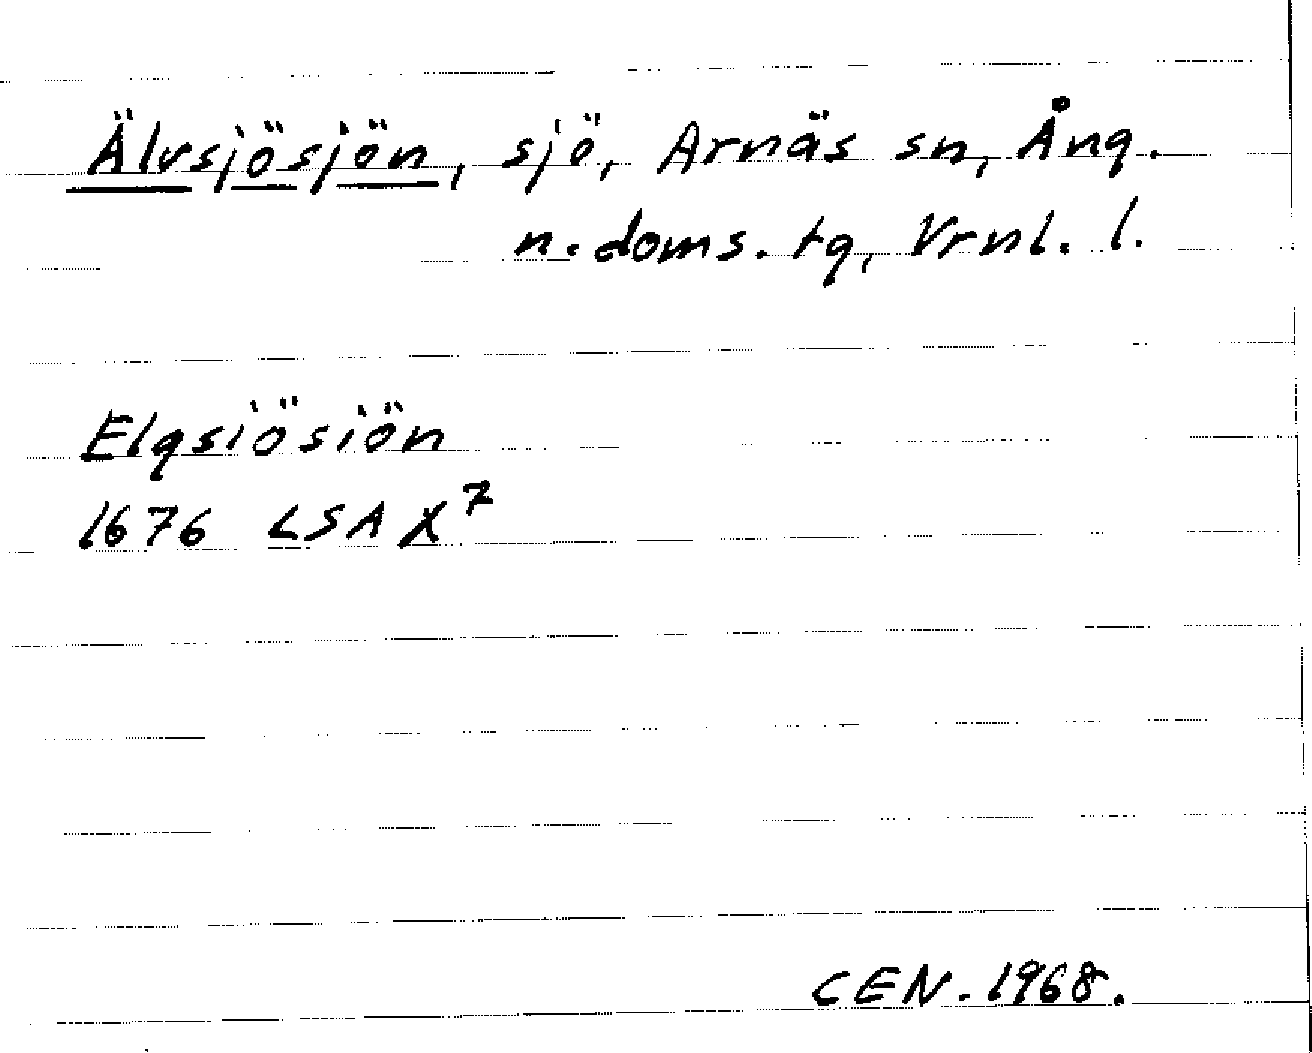 Älvsjösjön, sjö, Arnäs sn, Ång.
n. doms. tg, Vrnl. l.
Elgsiösiön
1676 LSA X⁷
CEN. 1968.